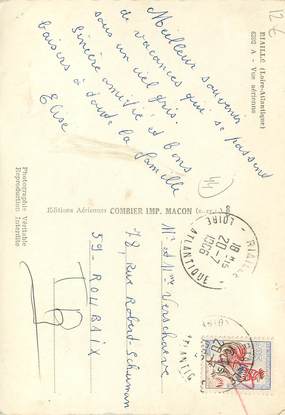 RIAILLÉ (Loire-Atlantique)
6202 A - Vue aérienne
Meilleur souvenir
de vacances qui se passent
sous un ciel gris.
Sincère amitié et bons
baisers à toute la famille
Elise
12€
Editions Aériennes COMBIER IMP. MACON
Photographie Véritable
Reproduction Interdite
RIAILLÉ
18H15
20-7
1966
LOIRE ATLANTIQUE
Mr et Mme Verschaeve
78, Rue Robert-Schuman
59-ROUBAIX